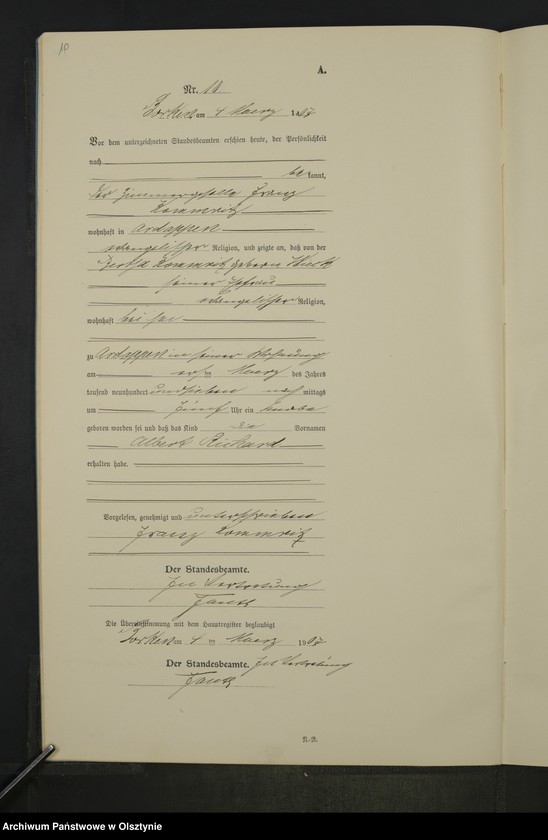 10
A.
Nr. 11
Borken am 4 Maerz 1907
Vor dem unterzeichneten Standesbeamten erschien heute, der Persönlichkeit
nach
be kannt,
der Zimmergeselle Franz
Kommritz
wohnhaft in Ardappen
evangelischer Religion, und zeigte an, daß von der
Kommritz geborene
seiner Ehefrau
evangelischer Religion,
wohnhaft bei ihm
zu Ardappen in seiner Wohnung
am ersten Maerz des Jahres
tausend neunhundert und sieben nachmittags
um fünf Uhr ein Knabe
geboren worden sei und daß das Kind die Vornamen
Albert Richard
erhalten habe.
Vorgelesen, genehmigt und unterschrieben
Franz Kommritz
Der Standesbeamte.
In Vertretung
Die Übereinstimmung mit dem Hauptregister beglaubigt
Borken am 4 ten Maerz 1907
Der Standesbeamte. In Vertretung
Archiwum Państwowe w Olsztynie